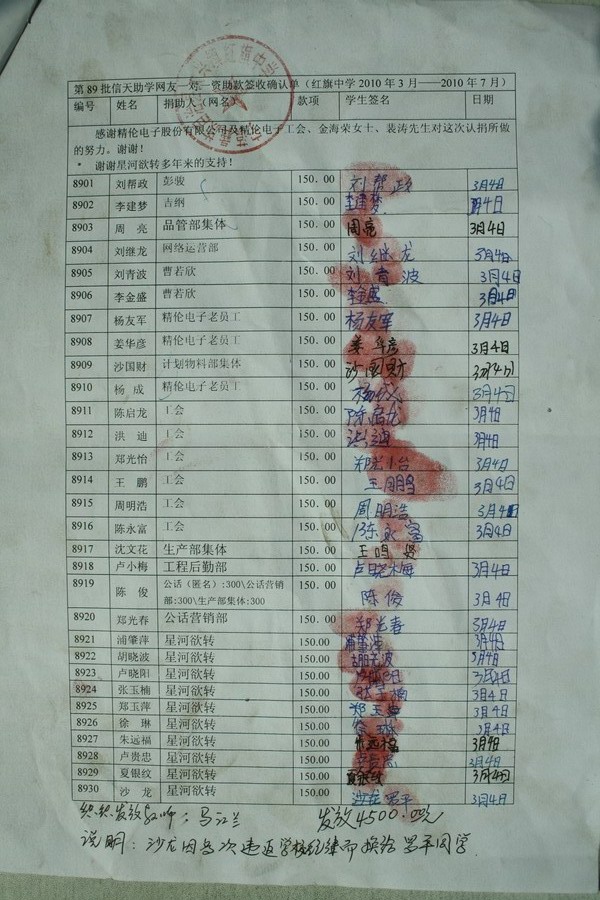 第 89 批信天助学网友一对一资助款签收确认单（红旗中学 2010 年 3 月——2010 年 7 月）
编号 姓名 捐助人（网名） 款项 学生签名 日期
感谢精伦电子股份有限公司及精伦电子工会、金海荣女士、裴涛先生对这次认捐所做
的努力。谢谢！
* 谢谢星河欲转多年来的支持！
8901 刘帮政 彭骏 150.00 刘帮政 3月4日
8902 李建梦 古纲 150.00 李建梦 3月4日
8903 周 亮 品管部集体 150.00 周亮 3月4日
8904 刘继龙 网络运营部 150.00 刘继龙 3月4日
8905 刘青波 曹若欣 150.00 刘青波 3月4日
8906 李金盛 曹若欣 150.00 李金盛 3月4日
8907 杨友军 精伦电子老员工 150.00 杨友军 3月4日
8908 姜华彦 精伦电子老员工 150.00 姜华彦 3月4日
8909 沙国财 计划物料部集体 150.00 沙国财 3月4日
8910 杨 成 精伦电子老员工 150.00 杨成 3月4日
8911 陈启龙 工会 150.00 陈启龙 3月4日
8912 洪 迪 工会 150.00 洪迪 3月4日
8913 郑光怡 工会 150.00 郑光怡 3月4日
8914 王 鹏 工会 150.00 王鹏 3月4日
8915 周明浩 工会 150.00 周明浩 3月4日
8916 陈永富 工会 150.00 陈永富 3月4日
8917 沈文花 生产部集体 150.00 王鸣贤 3月4日
8918 卢小梅 工程后勤部 150.00 卢晓梅 3月4日
8919 陈 俊 公话（匿名）:300\公话营销 150.00 陈俊 3月4日
部:300\生产部集体:300
8920 郑光春 公话营销部 150.00 郑光春 3月4日
8921 浦肇萍 星河欲转 150.00 浦肇萍 3月4日
8922 胡晓波 星河欲转 150.00 胡晓波 3月4日
8923 卢晓阳 星河欲转 150.00 卢晓阳 3月4日
8924 张玉楠 星河欲转 150.00 张玉楠 3月4日
8925 郑玉萍 星河欲转 150.00 郑玉萍 3月4日
8926 徐 琳 星河欲转 150.00 徐琳 3月4日
8927 朱远福 星河欲转 150.00 朱远福 3月4日
8928 卢贵忠 星河欲转 150.00 卢贵忠 3月4日
8929 夏银纹 星河欲转 150.00 夏银纹 3月4日
8930 沙 龙 星河欲转 150.00 沙龙 罗平 3月4日
组织发放教师：马江兰 发放4500.00元
说明：沙龙因多次违返学校纪律而换给罗平同学